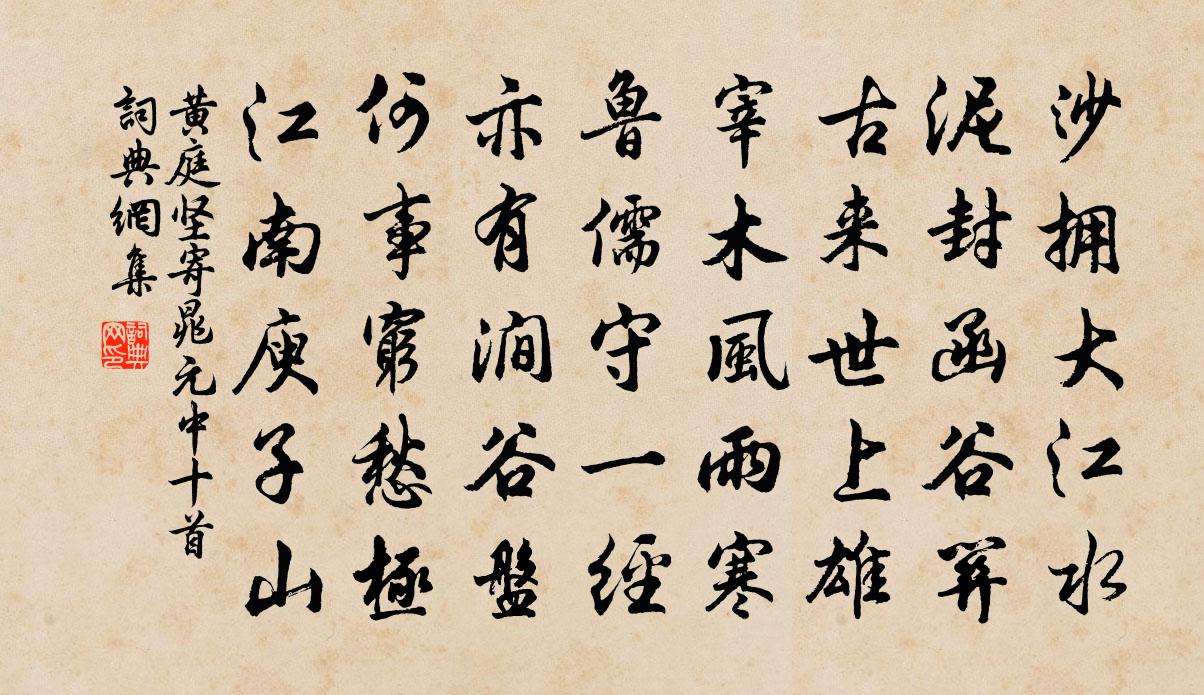 沙拥大江水
泥封函谷關
古来世上雄
宰木風雨寒
魯儒守一經
亦有澗谷盤
何事窮愁極
江南庾子山
黄庭坚寄晁元中十首
詞典網集
詞典
网印